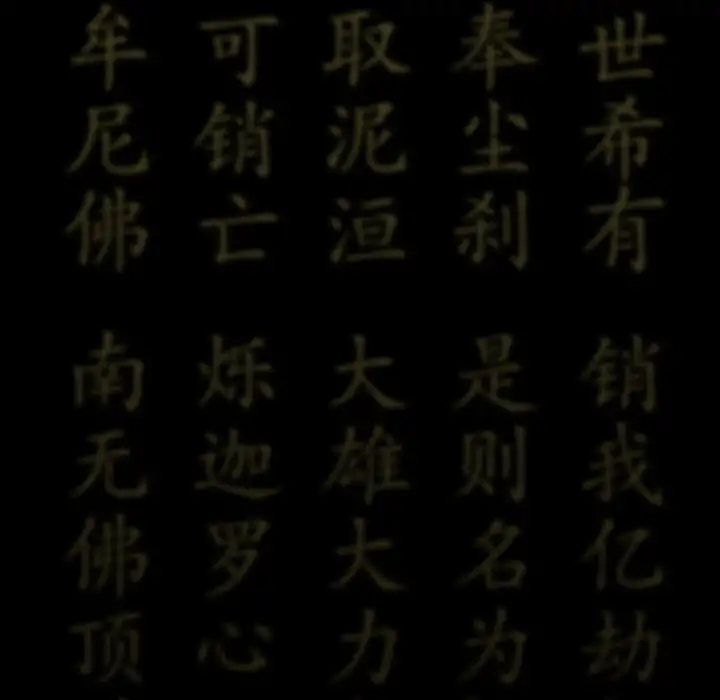 世希有
销我亿劫
奉尘刹
是则名为
取泥洹
大雄大力
可销亡
烁迦罗心
牟尼佛
南无佛顶